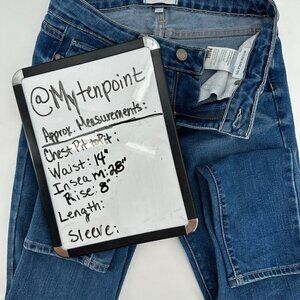 @Mytenpoint
Approx. Measurements:
Chest Pit to Pit:
Waist: 14"
Inseam: 28"
Rise: 8"
Length:
Sleeve: